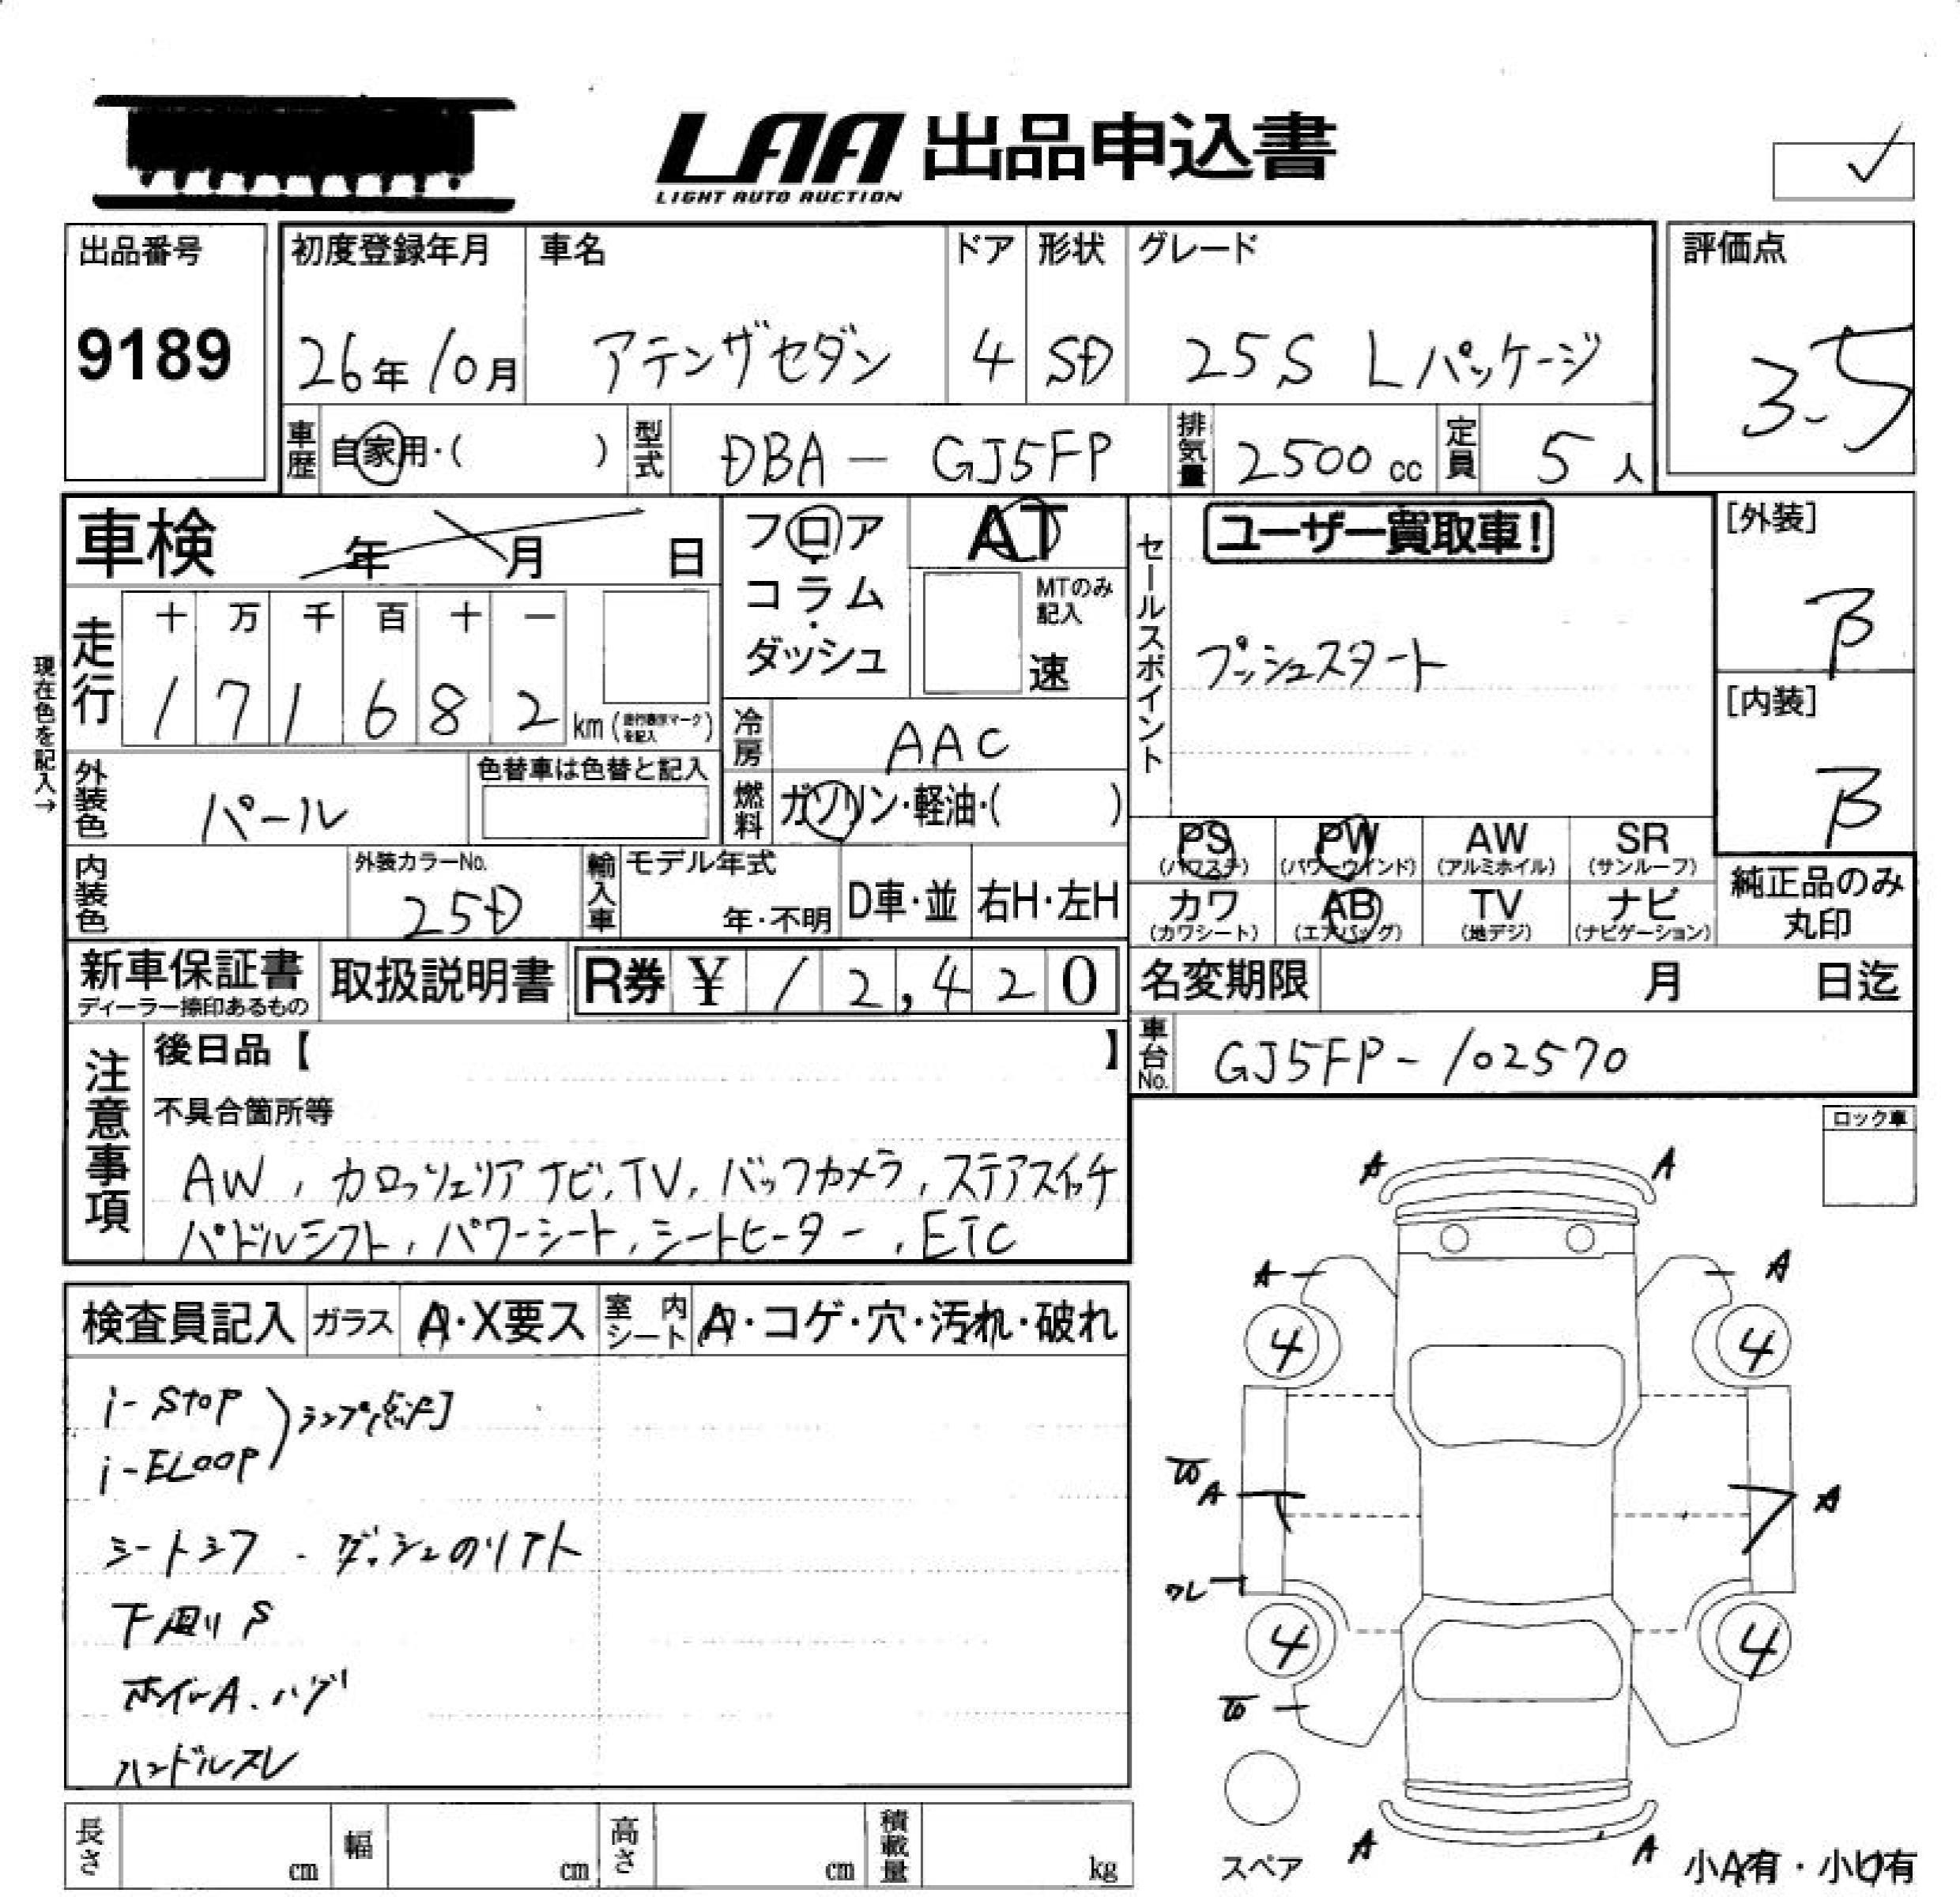 LAA 出品申込書
LIGHT AUTO AUCTION
出品番号
9189
初度登録年月
26年10月
車名
アテンザセダン
ドア
4
形状
SD
グレード
25S Lパッケージ
評価点
3.5
車歴
自家用・( )
型式
DBA - GJ5FP
排気量
2500 cc
定員
5人
車検 年 月 日
フロア・コラム・ダッシュ
AT
MTのみ記入
速
セールスポイント
ユーザー買取車!
プッシュスタート
[外装]
B
[内装]
B
現在色を記入→
走行
十 万 千 百 十 一
1 7 1 6 8 2 km (走行表示マークを記入)
冷房
AAC
燃料
ガソリン・軽油・( )
外装色
パール
色替車は色替と記入
内装色
外装カラーNo.
25D
輸入車
モデル年式
年・不明
D車・並
右H・左H
PS (パワステ)
PW (パワーウインド)
AW (アルミホイル)
SR (サンルーフ)
カワ (カワシート)
AB (エアバッグ)
TV (地デジ)
ナビ (ナビゲーション)
純正品のみ丸印
新車保証書
ディーラー捺印あるもの
取扱説明書
R券 ¥ 12,420
名変期限 月 日迄
車台No.
GJ5FP-102570
注意事項
後日品【 】
不具合箇所等
AW, カロッツェリアナビ, TV, バックカメラ, ステアスイッチ
パドルシフト, パワーシート, シートヒーター, ETC
ロック車
検査員記入
ガラス
A・X要ス
室内シート
A・コゲ・穴・汚れ・破れ
i-STOP
i-ELOOP
ランプ点灯
シートシワ . ダッシュのリアト
下回りS
ホイルA.ハゲ
ハンドルスレ
A A
A A
4 4
A A
ワレ
4 4
A A
スペア
小A有・小U有
長さ cm
幅 cm
高さ cm
積載量 kg